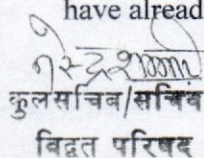 have alread
कुलसचिव/सचिव
विद्वत परिषद